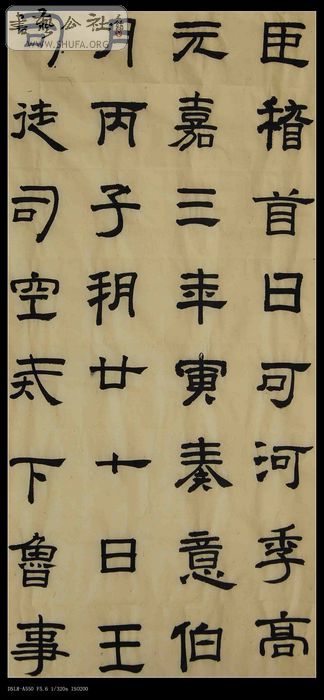 臣稽首日可河季高
元嘉三年寅奏意伯
月丙子朔廿十日王
司徒司空苂下魯事
書藝公社
WWW.SHUFA.ORG
DSLR-A550 F5.6 1/320s ISO200